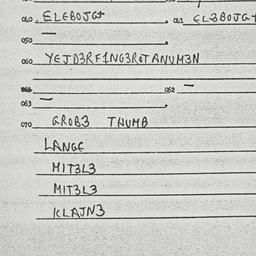 040 ELEBOJGT 041 EL3BOJGT
050 —
060 YEJD3RF1NG3R0TANUM3N
062 —
063 —
070 GROB3 THUMB
LANGE
MIT3L3
MIT3L3
KLAJN3